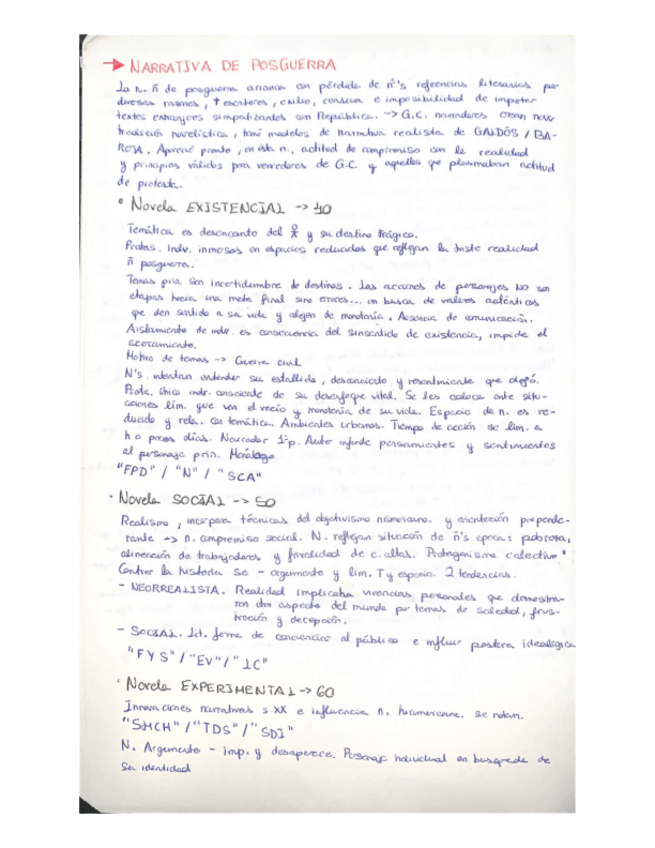 → NARRATIVA DE POSGUERRA
La n. ñ de posguerra arranca con pérdida de ñ's referencias literarias por
diversas razones, † escritores, exilio, censura e imposibilidad de importar
textos extranjeros simpatizantes con República. -> G.C. narradores crean nueva
tradición novelística, tomó modelos de narrativa realista de GALDÓS / BA-
ROJA. Apareció pronto, en esta n., actitud de compromiso con la realidad
y principios válidos para vencedores de G.C. y aquellos que plasmaban actitud
de protesta.
° Novela EXISTENCIAL -> 40
Temática es desencanto del y su destino trágico.
Protas. Indv. inmersos en espacios reducidos que reflejan la triste realidad
ñ posguerra.
Temas prin. son incertidumbre de destinos. Las acciones de personajes NO son
etapas hacia una meta final sino errores... en busca de valores auténticos
que den sentido a su vida y alejen de monotonía. Ausencia de comunicación.
Aislamiento de indv. es consecuencia del sinsentido de existencia, impide el
acercamiento.
Motivo de temas -> Guerra civil
N's. intentan entender su estallido, desencanto y resentimiento que dejó.
Prota. único indv. consciente de su desenfoque vital. Se les coloca ante situ-
caciones lím. que ven el vacío y monotonía de su vida. Espacio de n. es re-
ducido y rela. con temática. Ambientes urbanos. Tiempo de acción se lim. a
h o pocos días. Narrador 1ªp. Autor infunde pensamientos y sentimientos
al personaje prin. Monólogo
"FPD" / "N" / "SCA"
· Novela SOCIAL -> 50
Realismo, incorpora técnicas del objetivismo norteamericano. y orientación preponde-
rante -> n. compromiso social. N. reflejan situación de ñ's época: pobreza,
alineación de trabajadores y frivolidad de c. altas. Protagonismo colectivo.
Contar la historia se - argumento y lim. T y espacio. 2 tendencias.
- NEORREALISTA. Realidad implicaba vivencias personales que demostra-
ron otro aspecto del mundo por temas de soledad, frus-
tración y decepción.
- SOCIAL. Lit. forma de concienciar al público e influir postura ideológica
"FYS" / "EV" / "LC"
· Novela EXPERIMENTAL -> 60
Innovaciones narrativas s XX e influencia n. hisamericana. se notan.
"SMCH" / "TDS" / "SDI"
N. Argumento - imp. y desaparece. Personaje individual en busqueda de
su identidad